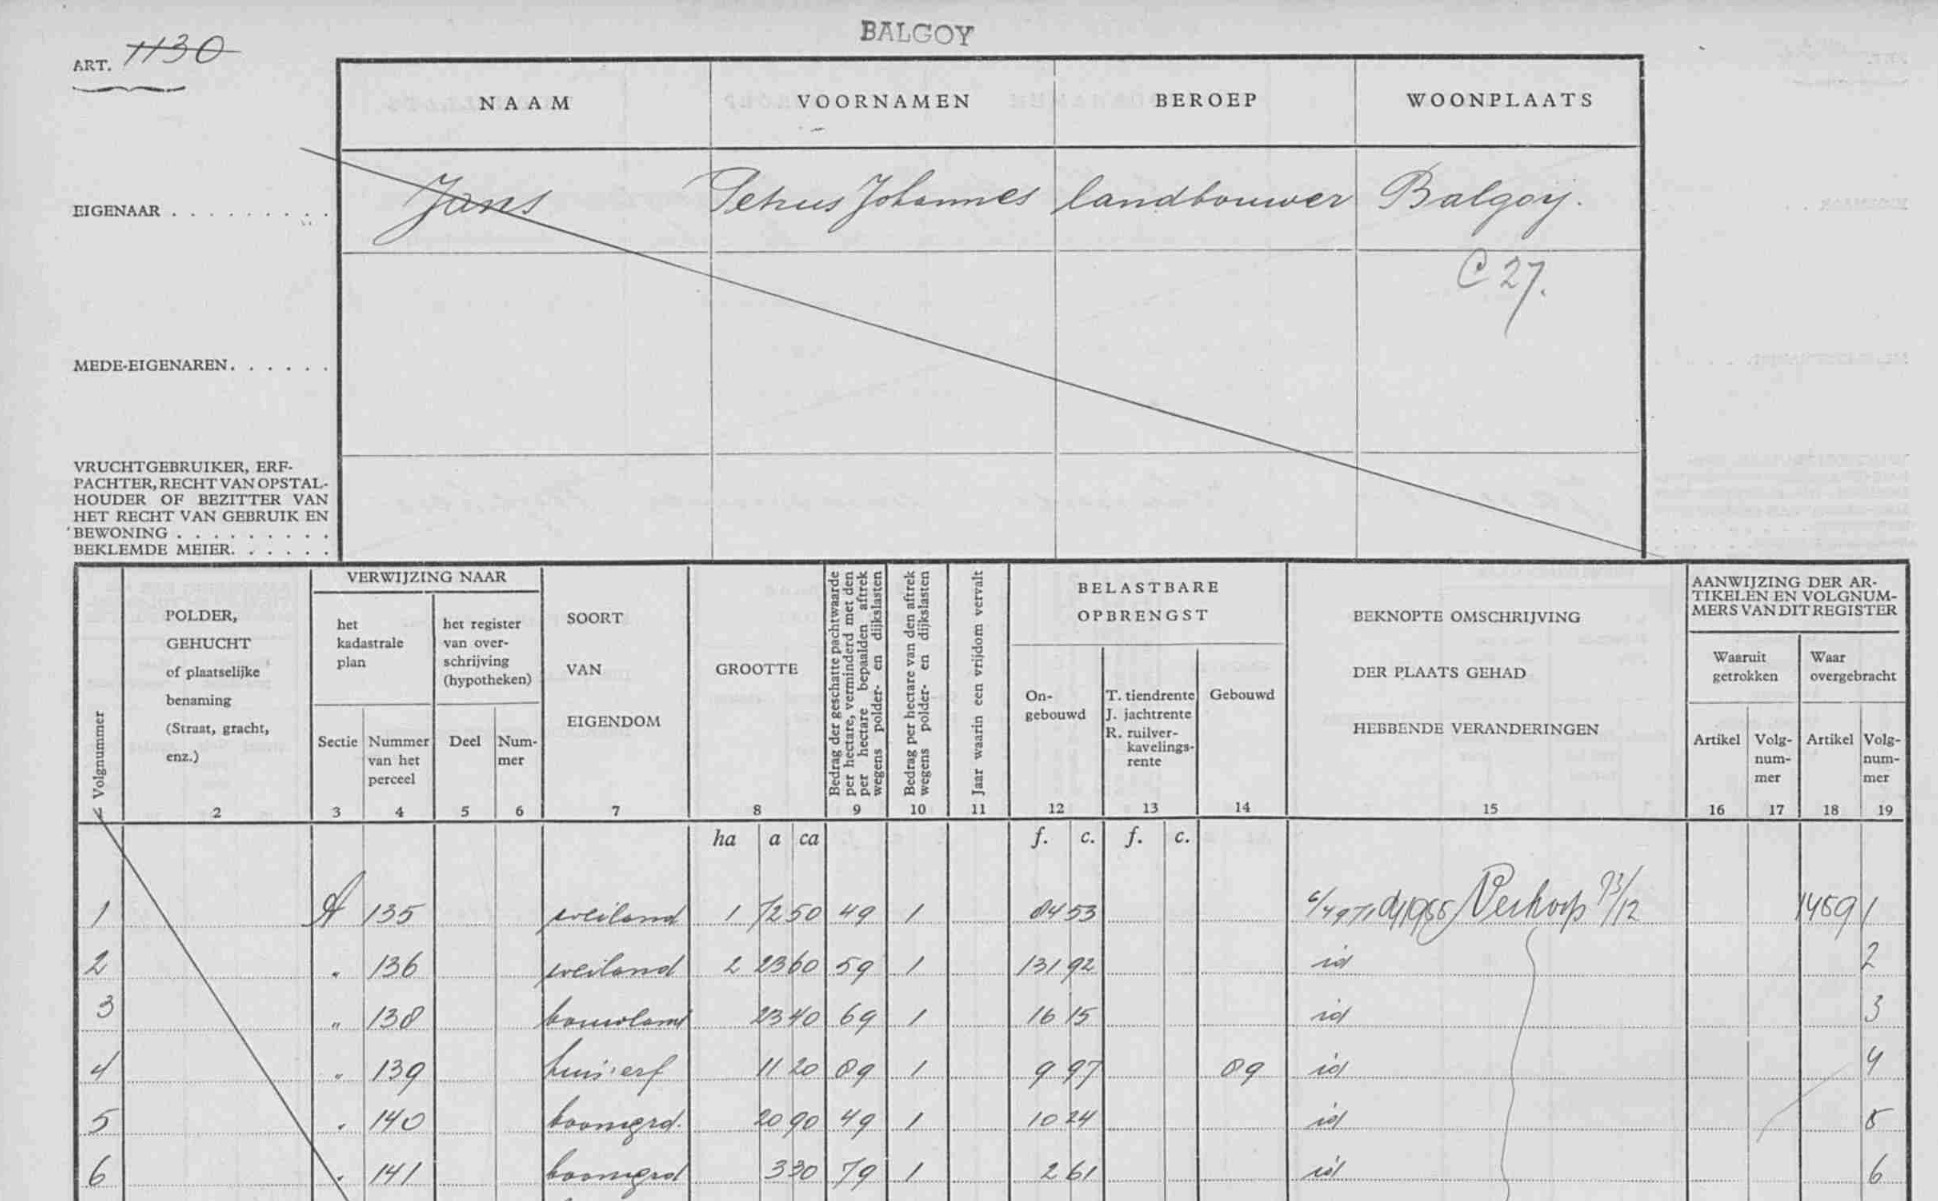 BALGOY
ART. 1130
NAAM VOORNAMEN BEROEP WOONPLAATS
EIGENAAR . . . . . . . . . Jans Petrus Johannes landbouwer Balgoij.
C 27.
MEDE-EIGENAREN. . . . . .
VRUCHTGEBRUIKER, ERF-
PACHTER, RECHT VAN OPSTAL-
HOUDER OF BEZITTER VAN
HET RECHT VAN GEBRUIK EN
BEWONING . . . . . . . . .
BEKLEMDE MEIER. . . . . .
Volgnummer
1
POLDER,
GEHUCHT
of plaatselijke
benaming
(Straat, gracht,
enz.)
2
VERWIJZING NAAR
het
kadastrale
plan
Sectie
3
Nummer
van het
perceel
4
het register
van over-
schrijving
(hypotheken)
Deel
5
Num-
mer
6
SOORT
VAN
EIGENDOM
7
GROOTTE
8
Bedrag der geschatte pachtwaarde
per hectare, verminderd met den
per hectare bepaalden aftrek
wegens polder- en dijkslasten
9
Bedrag per hectare van den aftrek
wegens polder- en dijkslasten
10
Jaar waarin een vrijdom vervalt
11
BELASTBARE
OPBRENGST
On-
gebouwd
12
T. tiendrente
J. jachtrente
R. ruilver-
kavelings-
rente
13
Gebouwd
14
BEKNOPTE OMSCHRIJVING
DER PLAATS GEHAD
HEBBENDE VERANDERINGEN
15
AANWIJZING DER AR-
TIKELEN EN VOLGNUM-
MERS VAN DIT REGISTER
Waaruit
getrokken
Artikel
16
Volg-
num-
mer
17
Waar
overgebracht
Artikel
18
Volg-
num-
mer
19
ha a ca f. c. f. c.
1 A 135 weiland 1 72 50 49 1 84 53 Verkoop 1459 1
2 " 136 weiland 2 23 60 59 1 131 92 id 2
3 " 138 bouwland 23 40 69 1 16 15 id 3
4 " 139 huis erf 11 20 89 1 9 97 89 id 4
5 " 140 boomgrd. 20 90 49 1 10 24 id 5
6 " 141 boomgrd 3 30 79 1 2 61 id 6